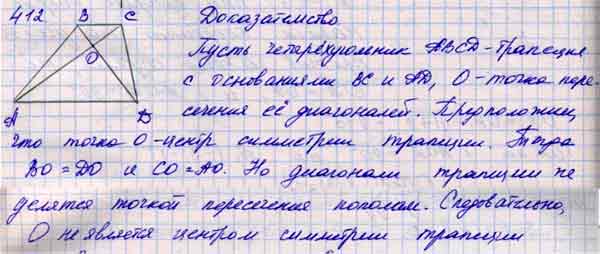 412 B C Доказательство
O Пусть четырёхугольник ABCD - трапеция
с основаниями BC и AD, O - точка пере-
A D сечения её диагоналей. Предположим,
что точка O - центр симметрии трапеции. Тогда
BO = DO и CO = AO. Но диагонали трапеции не
делятся точкой пересечения пополам. Следовательно,
O не является центром симметрии трапеции